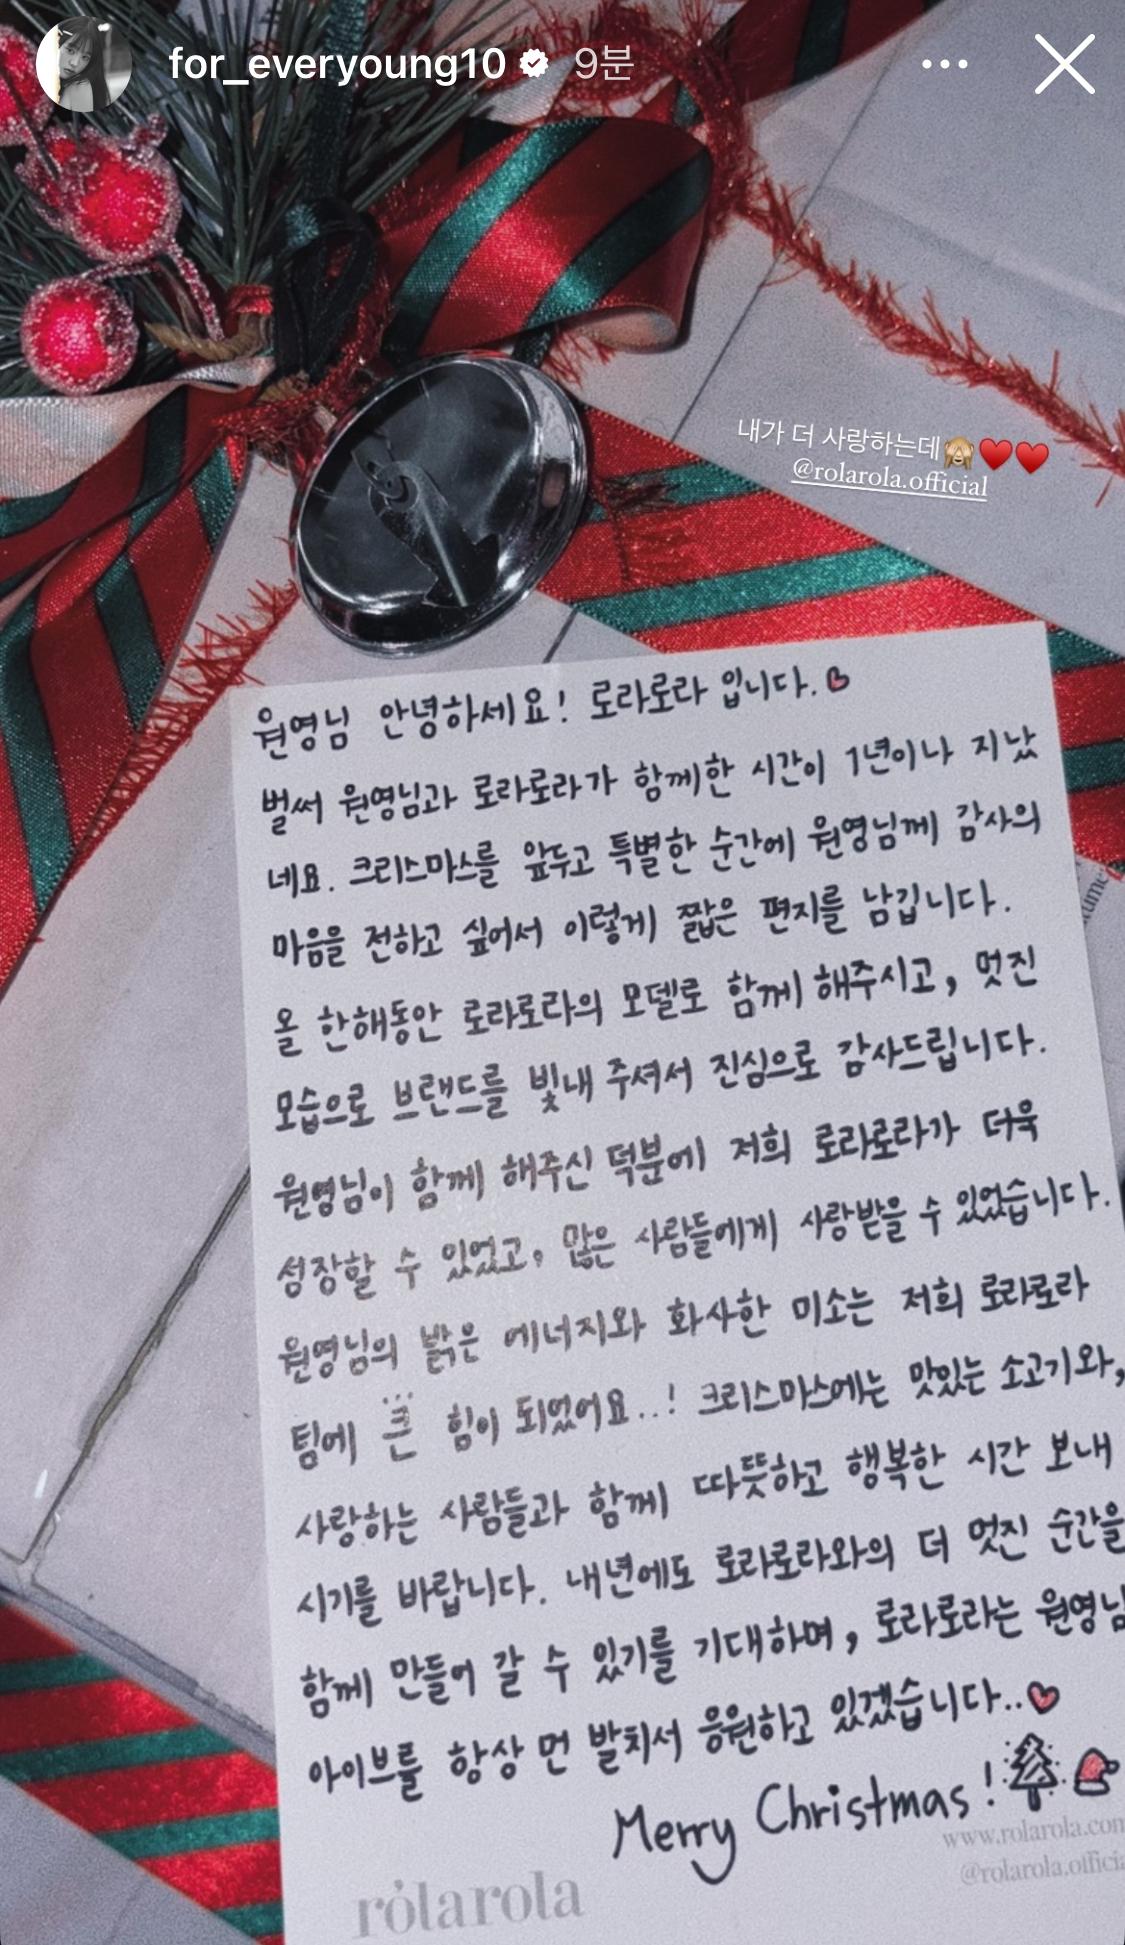 for_everyoung10 9분
내가 더 사랑하는데🙈♥️♥️
@rolarola.official
원영님 안녕하세요! 로라로라 입니다.
벌써 원영님과 로라로라가 함께한 시간이 1년이나 지났
네요. 크리스마스를 앞두고 특별한 순간에 원영님께 감사의
마음을 전하고 싶어서 이렇게 짧은 편지를 남깁니다.
올 한해동안 로라로라의 모델로 함께 해주시고, 멋진
모습으로 브랜드를 빛내 주셔서 진심으로 감사드립니다.
원영님이 함께 해주신 덕분에 저희 로라로라가 더욱
성장할 수 있었고, 많은 사람들에게 사랑받을 수 있었습니다.
원영님의 밝은 에너지와 화사한 미소는 저희 로라로라
팀에 큰 힘이 되었어요..! 크리스마스에는 맛있는 소고기와,
사랑하는 사람들과 함께 따뜻하고 행복한 시간 보내
시기를 바랍니다. 내년에도 로라로라와의 더 멋진 순간을
함께 만들어 갈 수 있기를 기대하며, 로라로라는 원영님
아이브를 항상 먼 발치서 응원하고 있겠습니다..
Merry Christmas!
www.rolarola.com
@rolarola.officia
rolarola